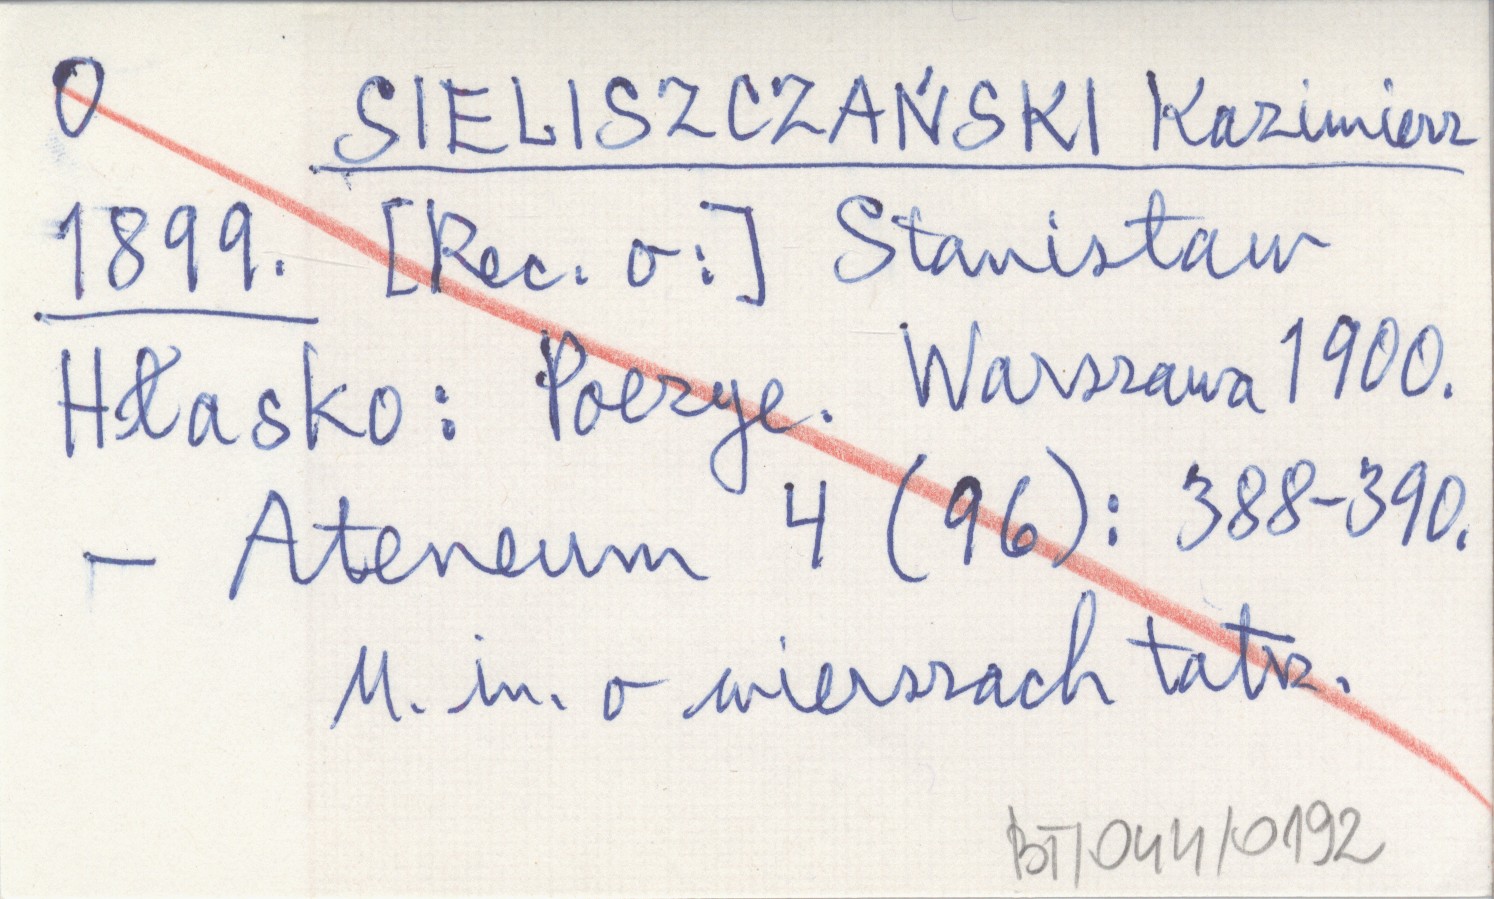 O SIELISZCZAŃSKI Kazimierz
1899. [Rec. o:] Stanisław
Hłasko: Poezye. Warszawa 1900.
- Ateneum 4 (96): 388-390.
M. in. o wierszach tatrz.
BT/044/0192